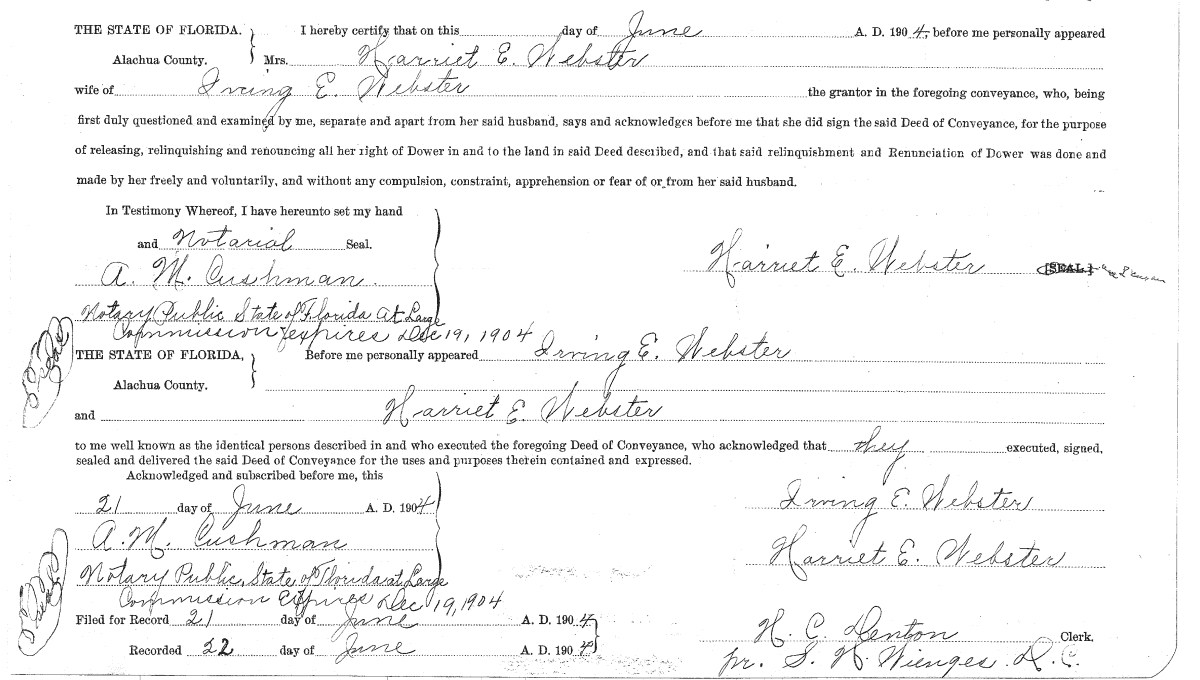 THE STATE OF FLORIDA. } I hereby certify that on this day of June A. D. 1904, before me personally appeared
Alachua County. Mrs. Harriet E. Webster
wife of Irving E. Webster the grantor in the foregoing conveyance, who, being
first duly questioned and examined by me, separate and apart from her said husband, says and acknowledges before me that she did sign the said Deed of Conveyance, for the purpose
of releasing, relinquishing and renouncing all her right of Dower in and to the land in said Deed described, and that said relinquishment and Renunciation of Dower was done and
made by her freely and voluntarily, and without any compulsion, constraint, apprehension or fear of or from her said husband.
In Testimony Whereof, I have hereunto set my hand
and Notarial Seal.
Harriet E. Webster [SEAL]
A. M. Cushman.
Notary Public State of Florida at Large
Commission expires Dec 19, 1904
THE STATE OF FLORIDA, } Before me personally appeared Irving E. Webster
Alachua County.
and Harriet E. Webster
to me well known as the identical persons described in and who executed the foregoing Deed of Conveyance, who acknowledged that they executed, signed,
sealed and delivered the said Deed of Conveyance for the uses and purposes therein contained and expressed.
Acknowledged and subscribed before me, this
21 day of June A. D. 1904
Irving E. Webster
A. M. Cushman
Harriet E. Webster
Notary Public, State of Florida at Large
Commission Expires Dec 19, 1904
Filed for Record 21 day of June A. D. 1904
H. C. Denton Clerk.
Recorded 22 day of June A. D. 1904
pr. S. H. Wienges. D. C.